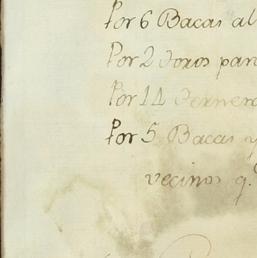 Por 6 Bacas al
Por 2 Toros par
Por 14 Ternero
Por 5 Bacas y
vecinos q.